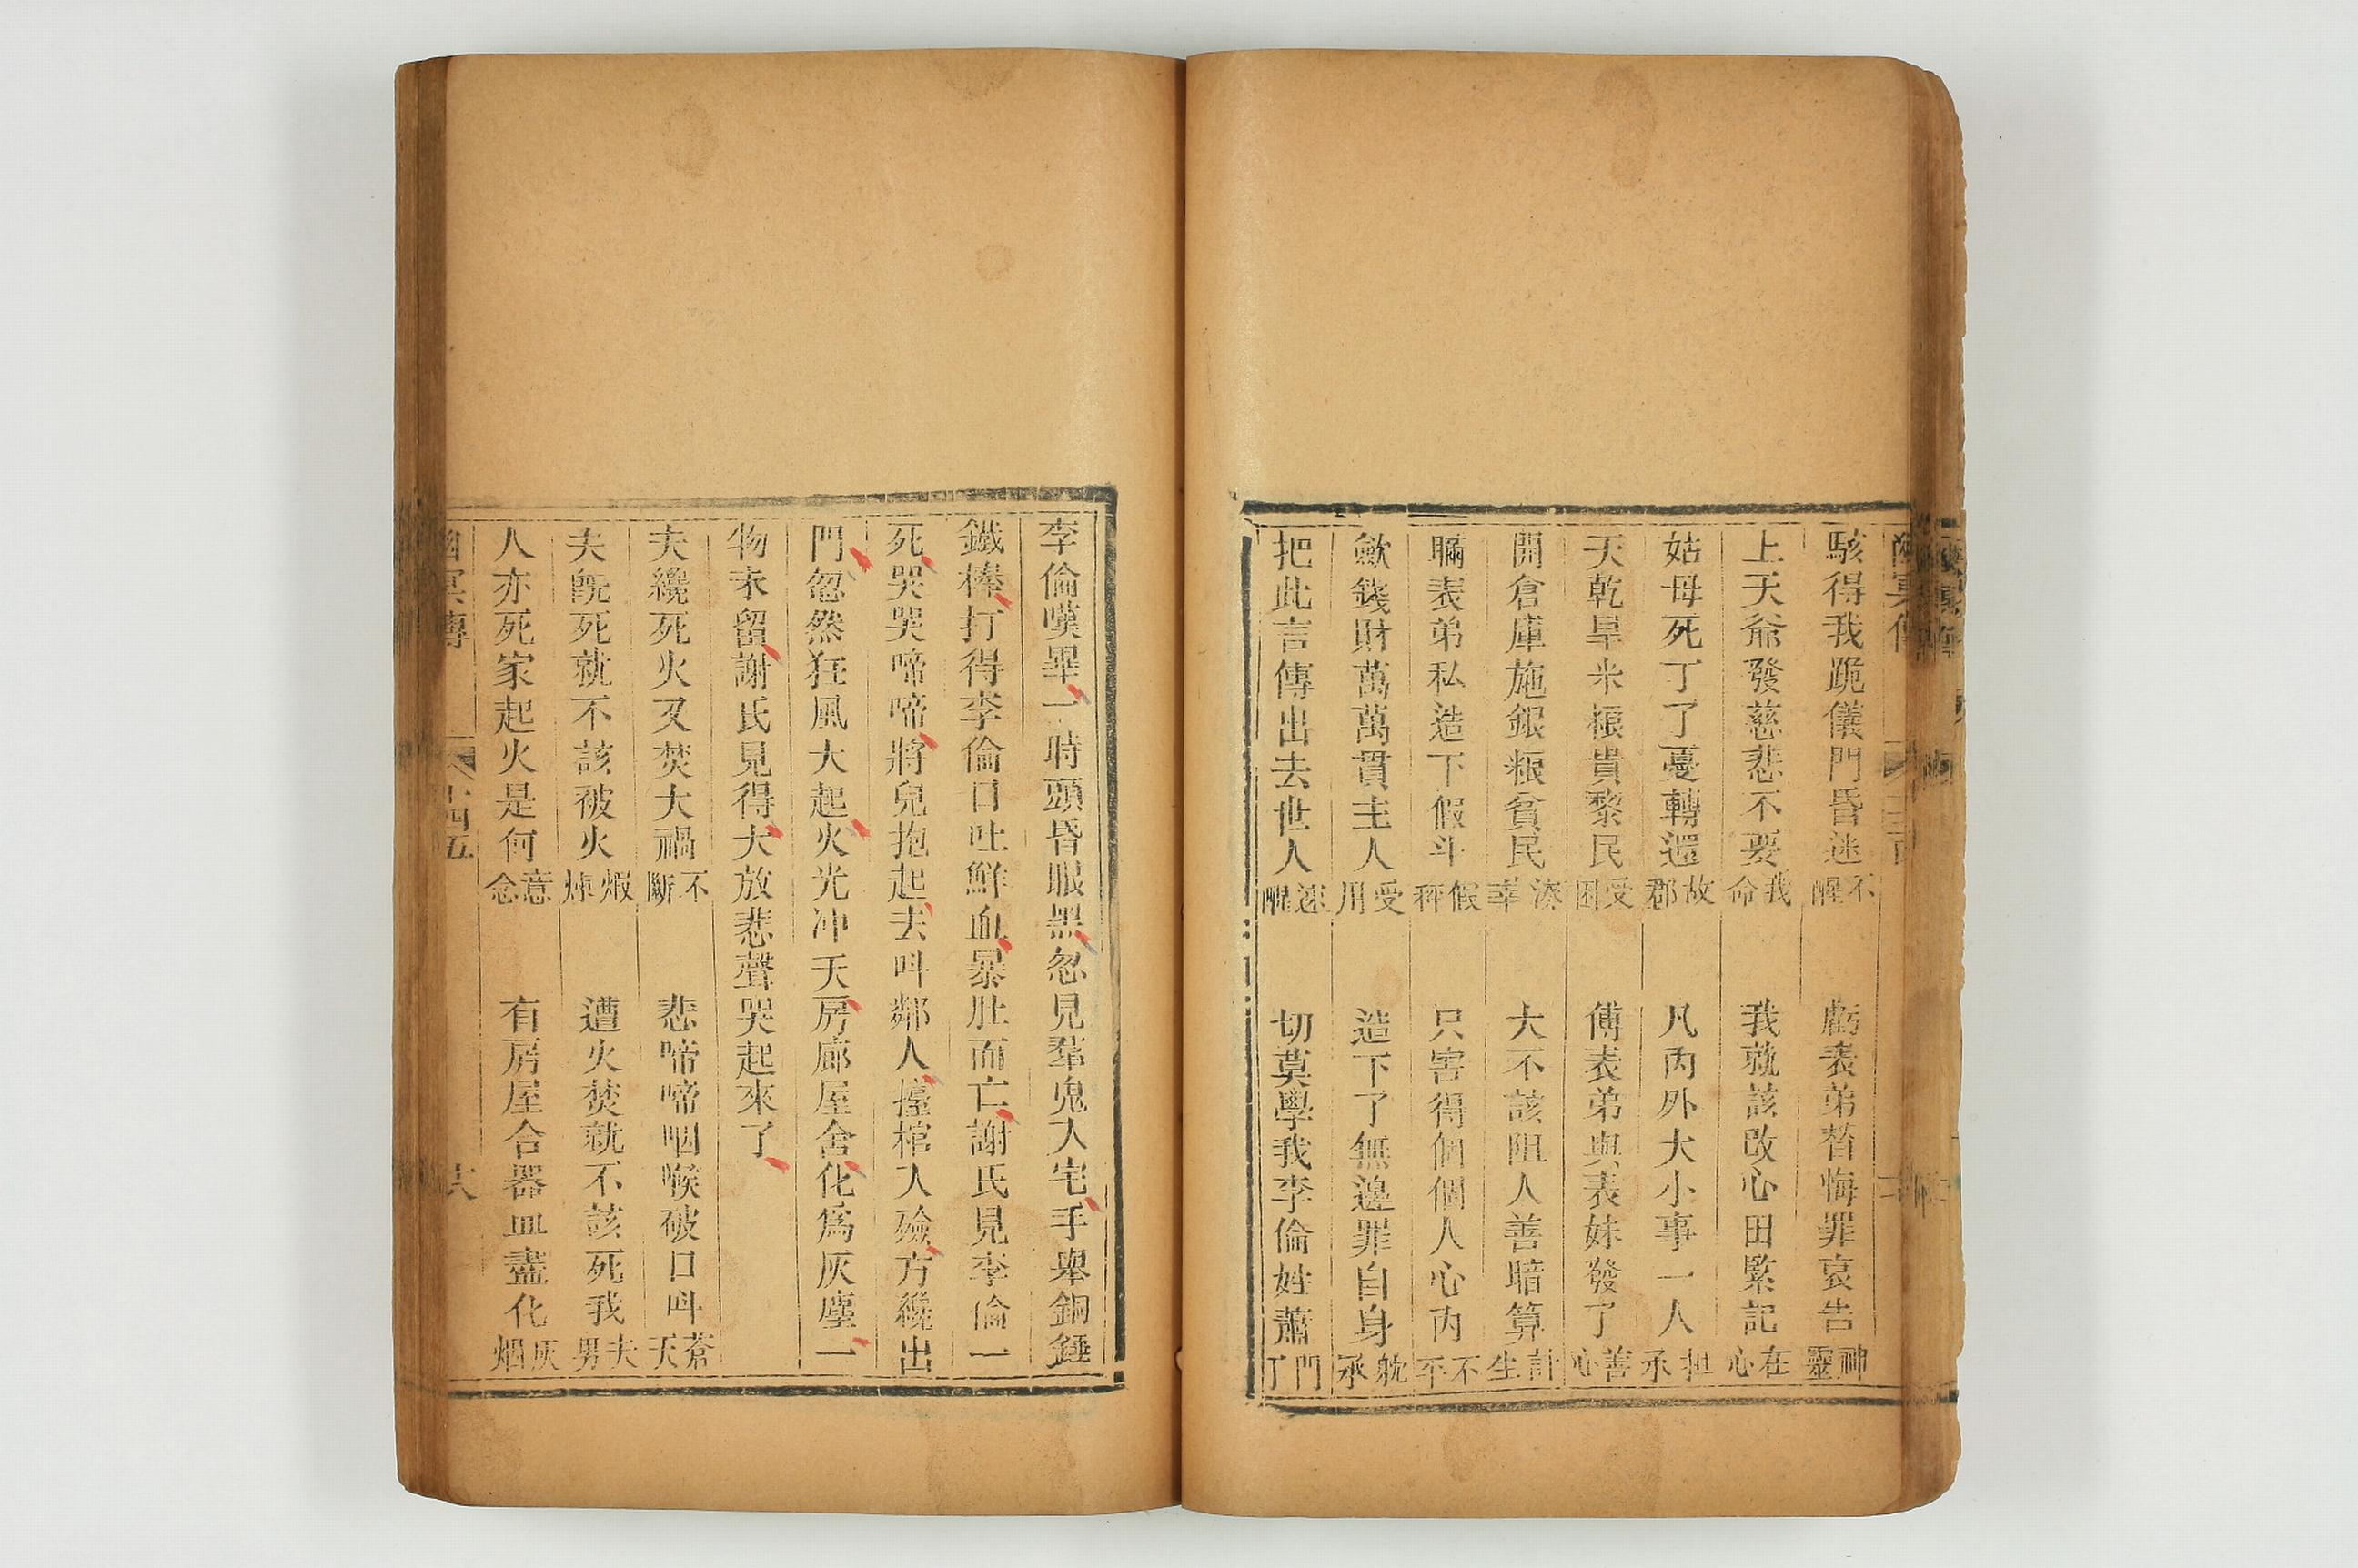 駭得我跪儀門昏迷不醒　虧表弟替悔罪哀告神靈
上天爺發慈悲不要我命　我就該改心田緊記在心
姑母死丁了憂轉還故郡　凡內外大小事一人担承
天乾旱米粮貴黎民受困　傅表弟與表妹發了善心
開倉庫施銀粮貧民湊幸　大不該阻人善暗算計生
瞞表弟私造下假斗假秤　只害得個個人心內不平
歛錢財萬萬貫主人受用　造下了無邊罪自身就承
把此言傳出去世人速醒　切莫學我李倫姓蕭門丁
李倫嘆畢一時頭昏眼黑忽見羣鬼入宅手舉銅錘
鐵棒打得李倫口吐鮮血暴肚而亡謝氏見李倫一
死哭哭啼啼將兒抱起去呌鄰人擡棺入殮方纔出
門忽然狂風大起火光冲天房廊屋舍化爲灰塵一
物未留謝氏見得大放悲聲哭起來了
夫纔死火又焚大禍不斷　悲啼啼咽喉破口呌蒼天
夫旣死就不該被火煅煉　遭火焚就不該死我夫男
人亦死家起火是何意念　有房屋合器皿盡化灰烟
幽冥傳